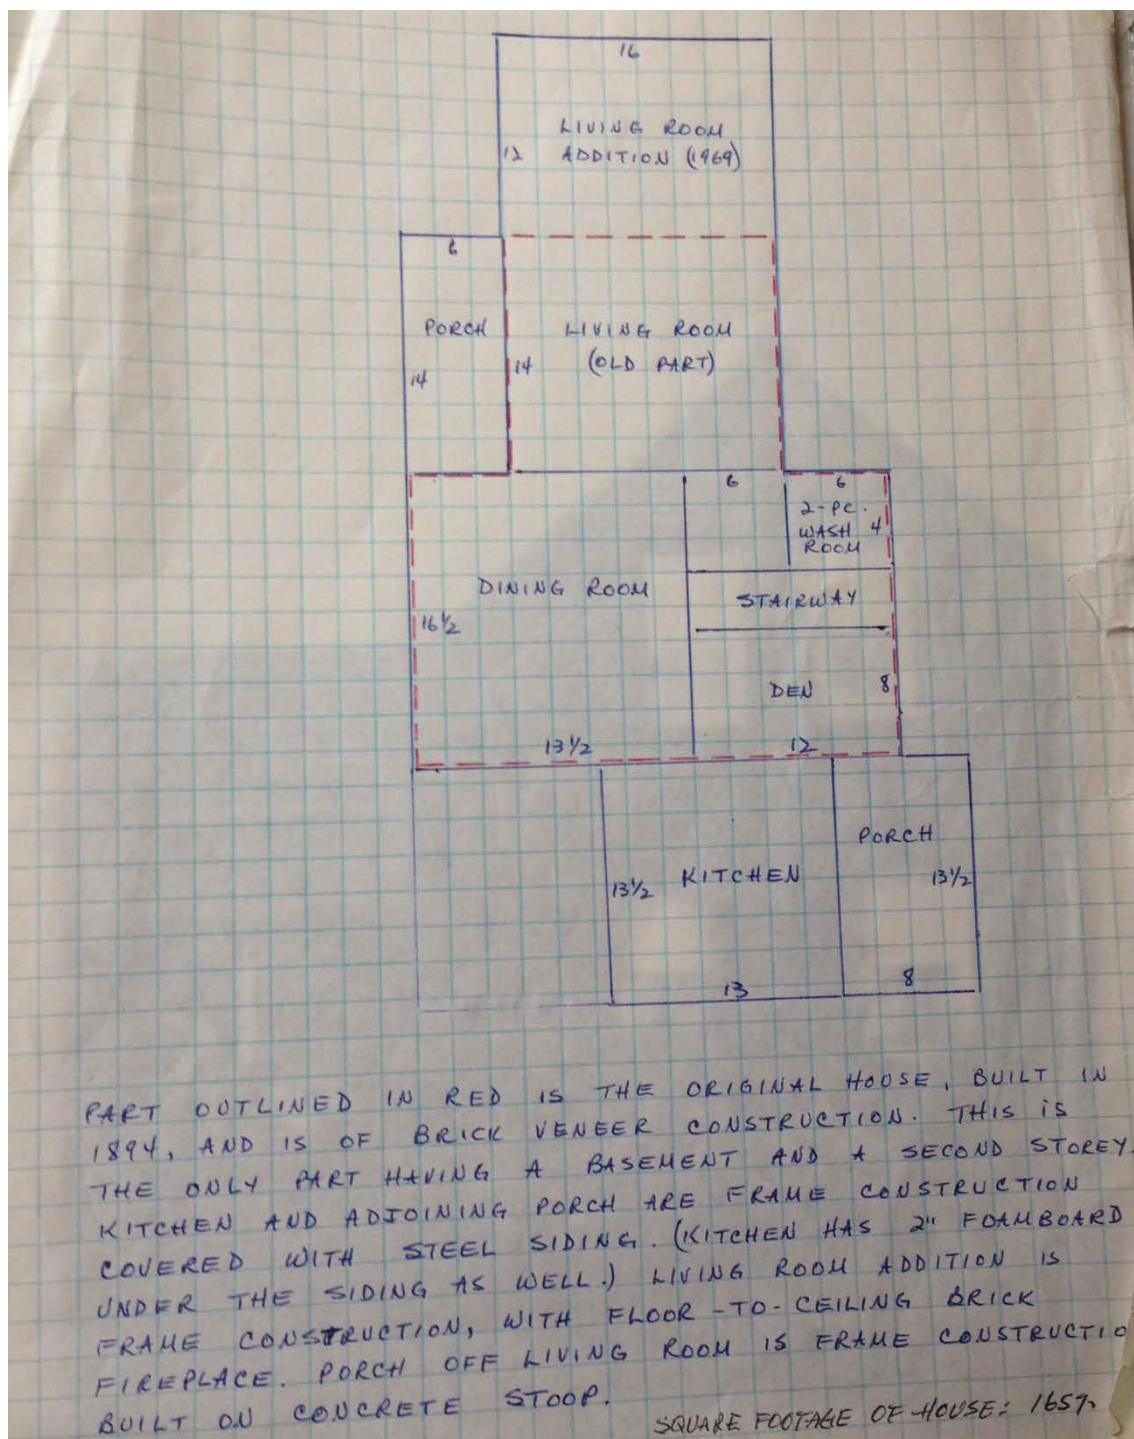 16
LIVING ROOM
12 ADDITION (1969)
6
PORCH
LIVING ROOM
14
14 (OLD PART)
6
6
2-PC.
WASH 4
ROOM
DINING ROOM
STAIRWAY
16 1/2
DEN 8
13 1/2
12
PORCH
13 1/2 KITCHEN
13 1/2
13
8
PART OUTLINED IN RED IS THE ORIGINAL HOUSE, BUILT IN
1894, AND IS OF BRICK VENEER CONSTRUCTION. THIS IS
THE ONLY PART HAVING A BASEMENT AND A SECOND STOREY.
KITCHEN AND ADJOINING PORCH ARE FRAME CONSTRUCTION
COVERED WITH STEEL SIDING. (KITCHEN HAS 2" FOAMBOARD
UNDER THE SIDING AS WELL.) LIVING ROOM ADDITION IS
FRAME CONSTRUCTION, WITH FLOOR-TO-CEILING BRICK
FIREPLACE. PORCH OFF LIVING ROOM IS FRAME CONSTRUCTIO
BUILT ON CONCRETE STOOP.
SQUARE FOOTAGE OF HOUSE: